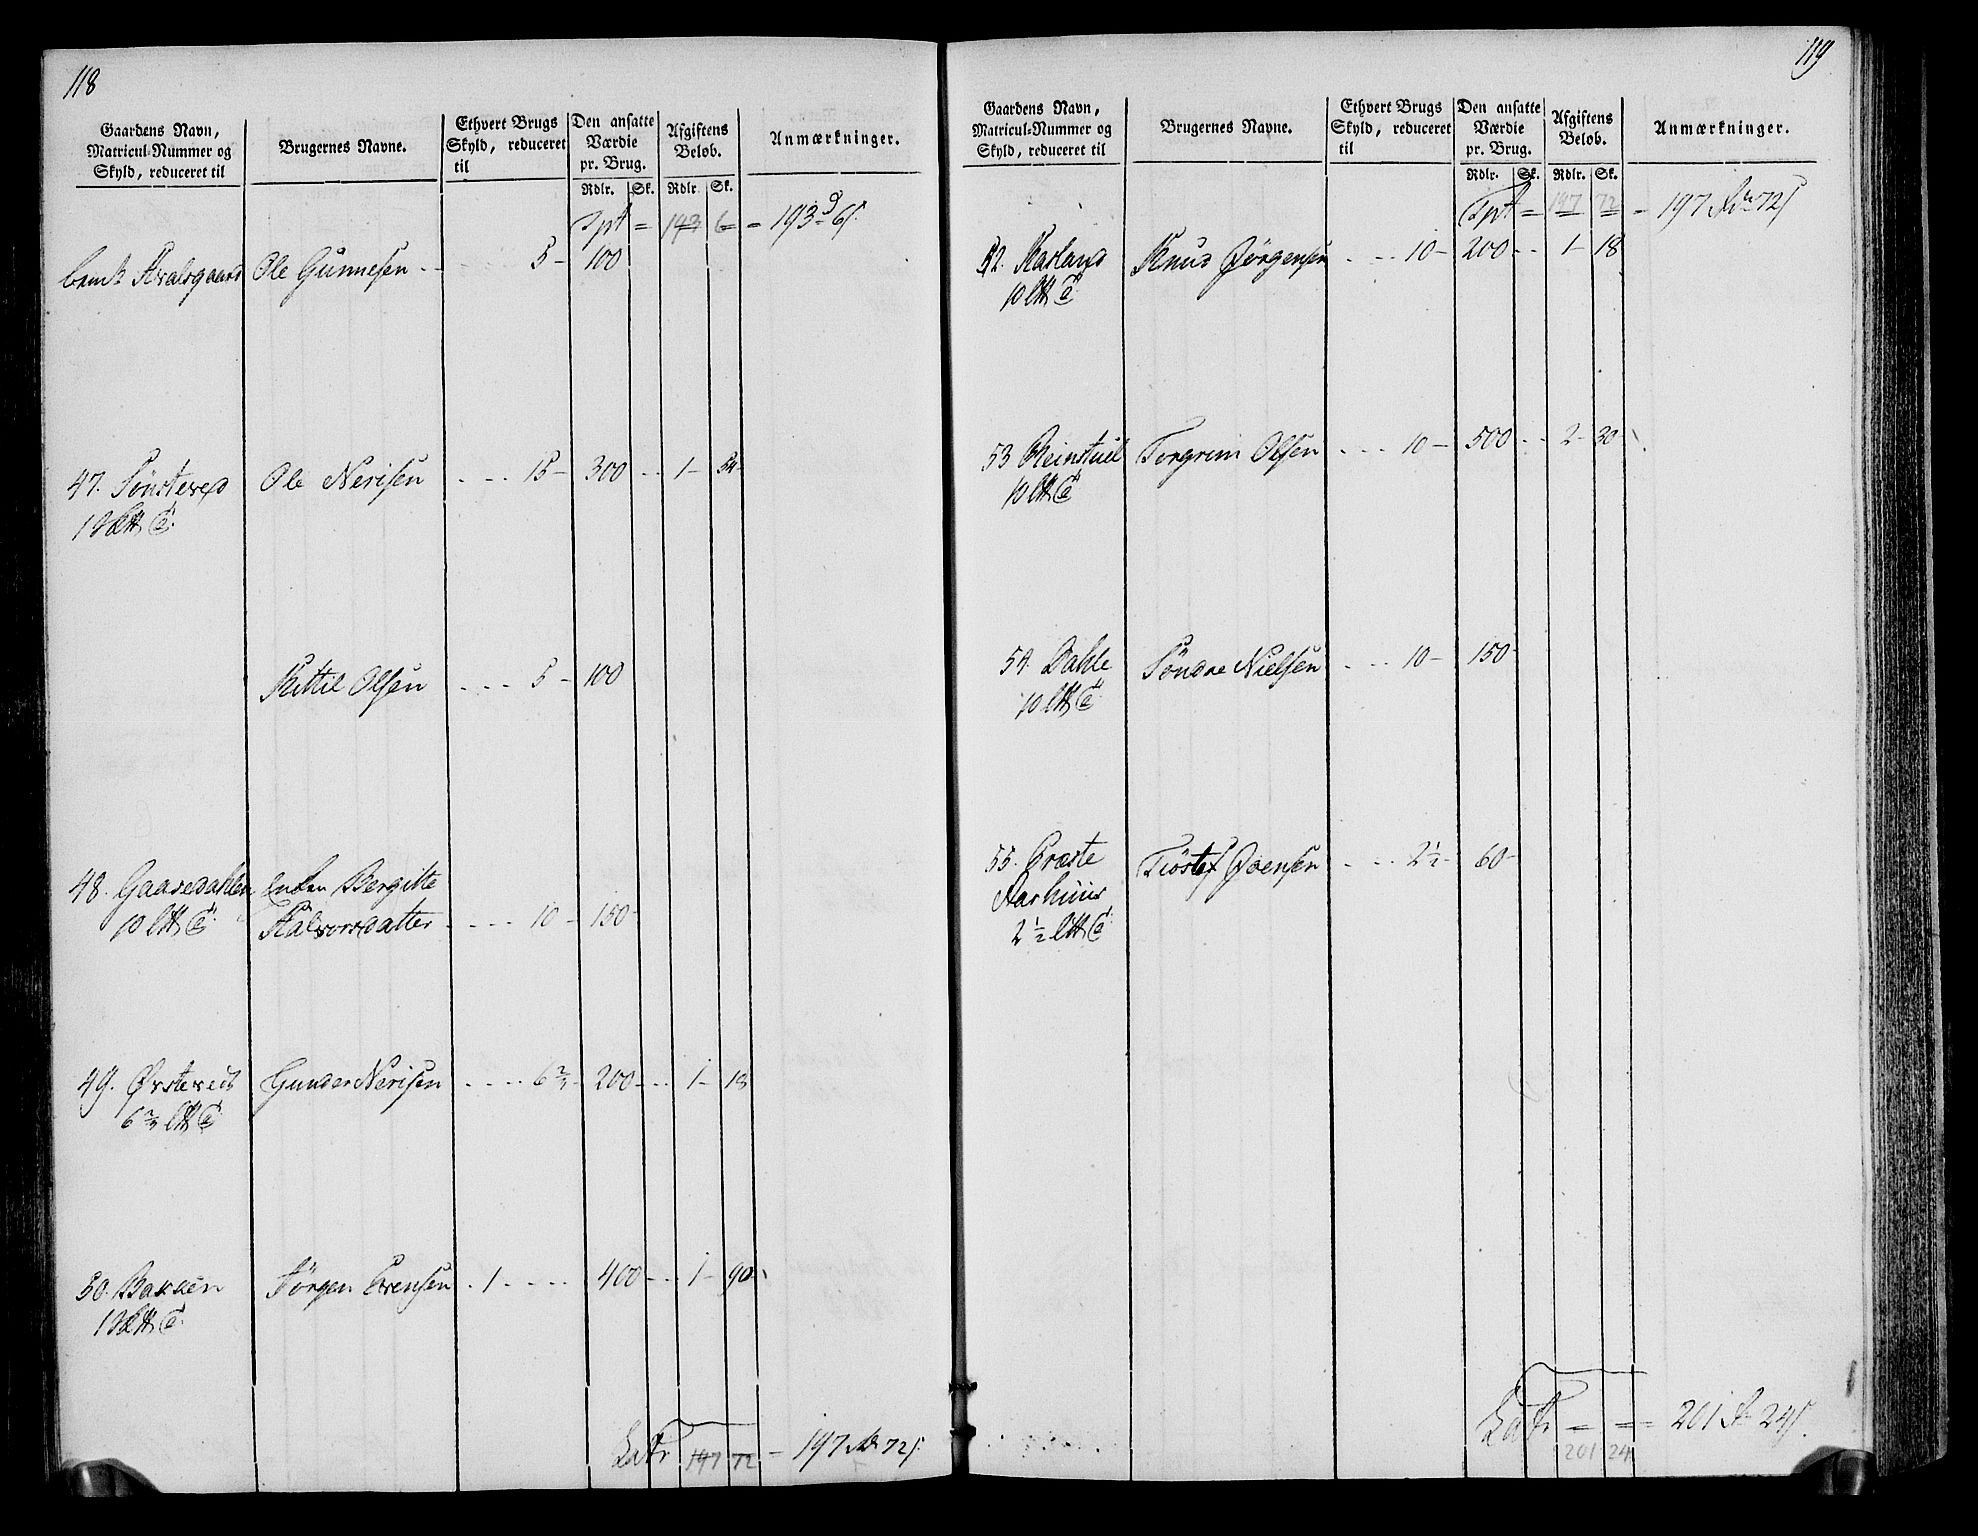 118
Gaardens Navn,
Matricul-Nummer og
Skyld, reduceret til
Brugernes Navne.
Ethvert Brugs
Skyld, reduceret
til
Den ansatte
Værdie
pr. Brug.
Rdlr. Sk.
Afgiftens
Beløb.
Rdlr. Sk.
Anmærkninger.
Tpt = 193 6 = 193 d 6 s.
Ole Gunnesen - - 5 - 100
47. Sønsteved Ole Nerisen - - - 15 - 300 - - 1 - 54
Kittil Olsen - - - 5 - 100
48. Gaasedahlen Enken Bergitte
10 Halvorsdatter - - - 10 - 150
49. Østeved Gunder Nerisen - - - 6 2/3 - 200 - - 1 - 18
6 2/3
50. Bakken Jørgen Evensen - 1 - - - 400 - - 1 - 90
Latr 197 72 = 197 Rdr 72 s.
119
Gaardens Navn,
Matricul-Nummer og
Skyld, reduceret til
Brugernes Navne.
Ethvert Brugs
Skyld, reduceret
til
Den ansatte
Værdie
pr. Brug.
Rdlr. Sk.
Afgiftens
Beløb.
Rdlr. Sk.
Anmærkninger.
Tpt = 197 72 = 197 Rdr 72 s
52. Harland Knud Jørgensen - - - 10 - 200 - - 1 - 18
10
53 Reinstuel Torgrim Olsen - - - 10 - 500 - - 2 - 30
10
54. Dahle Søndre Nielsen - - - 10 - 150
10
55. Præste Tiøstel Øvensen - - - 2 1/2 - 60
Aarhuus
2 1/2
Latr = = 201 Rd 24 s.
201 24